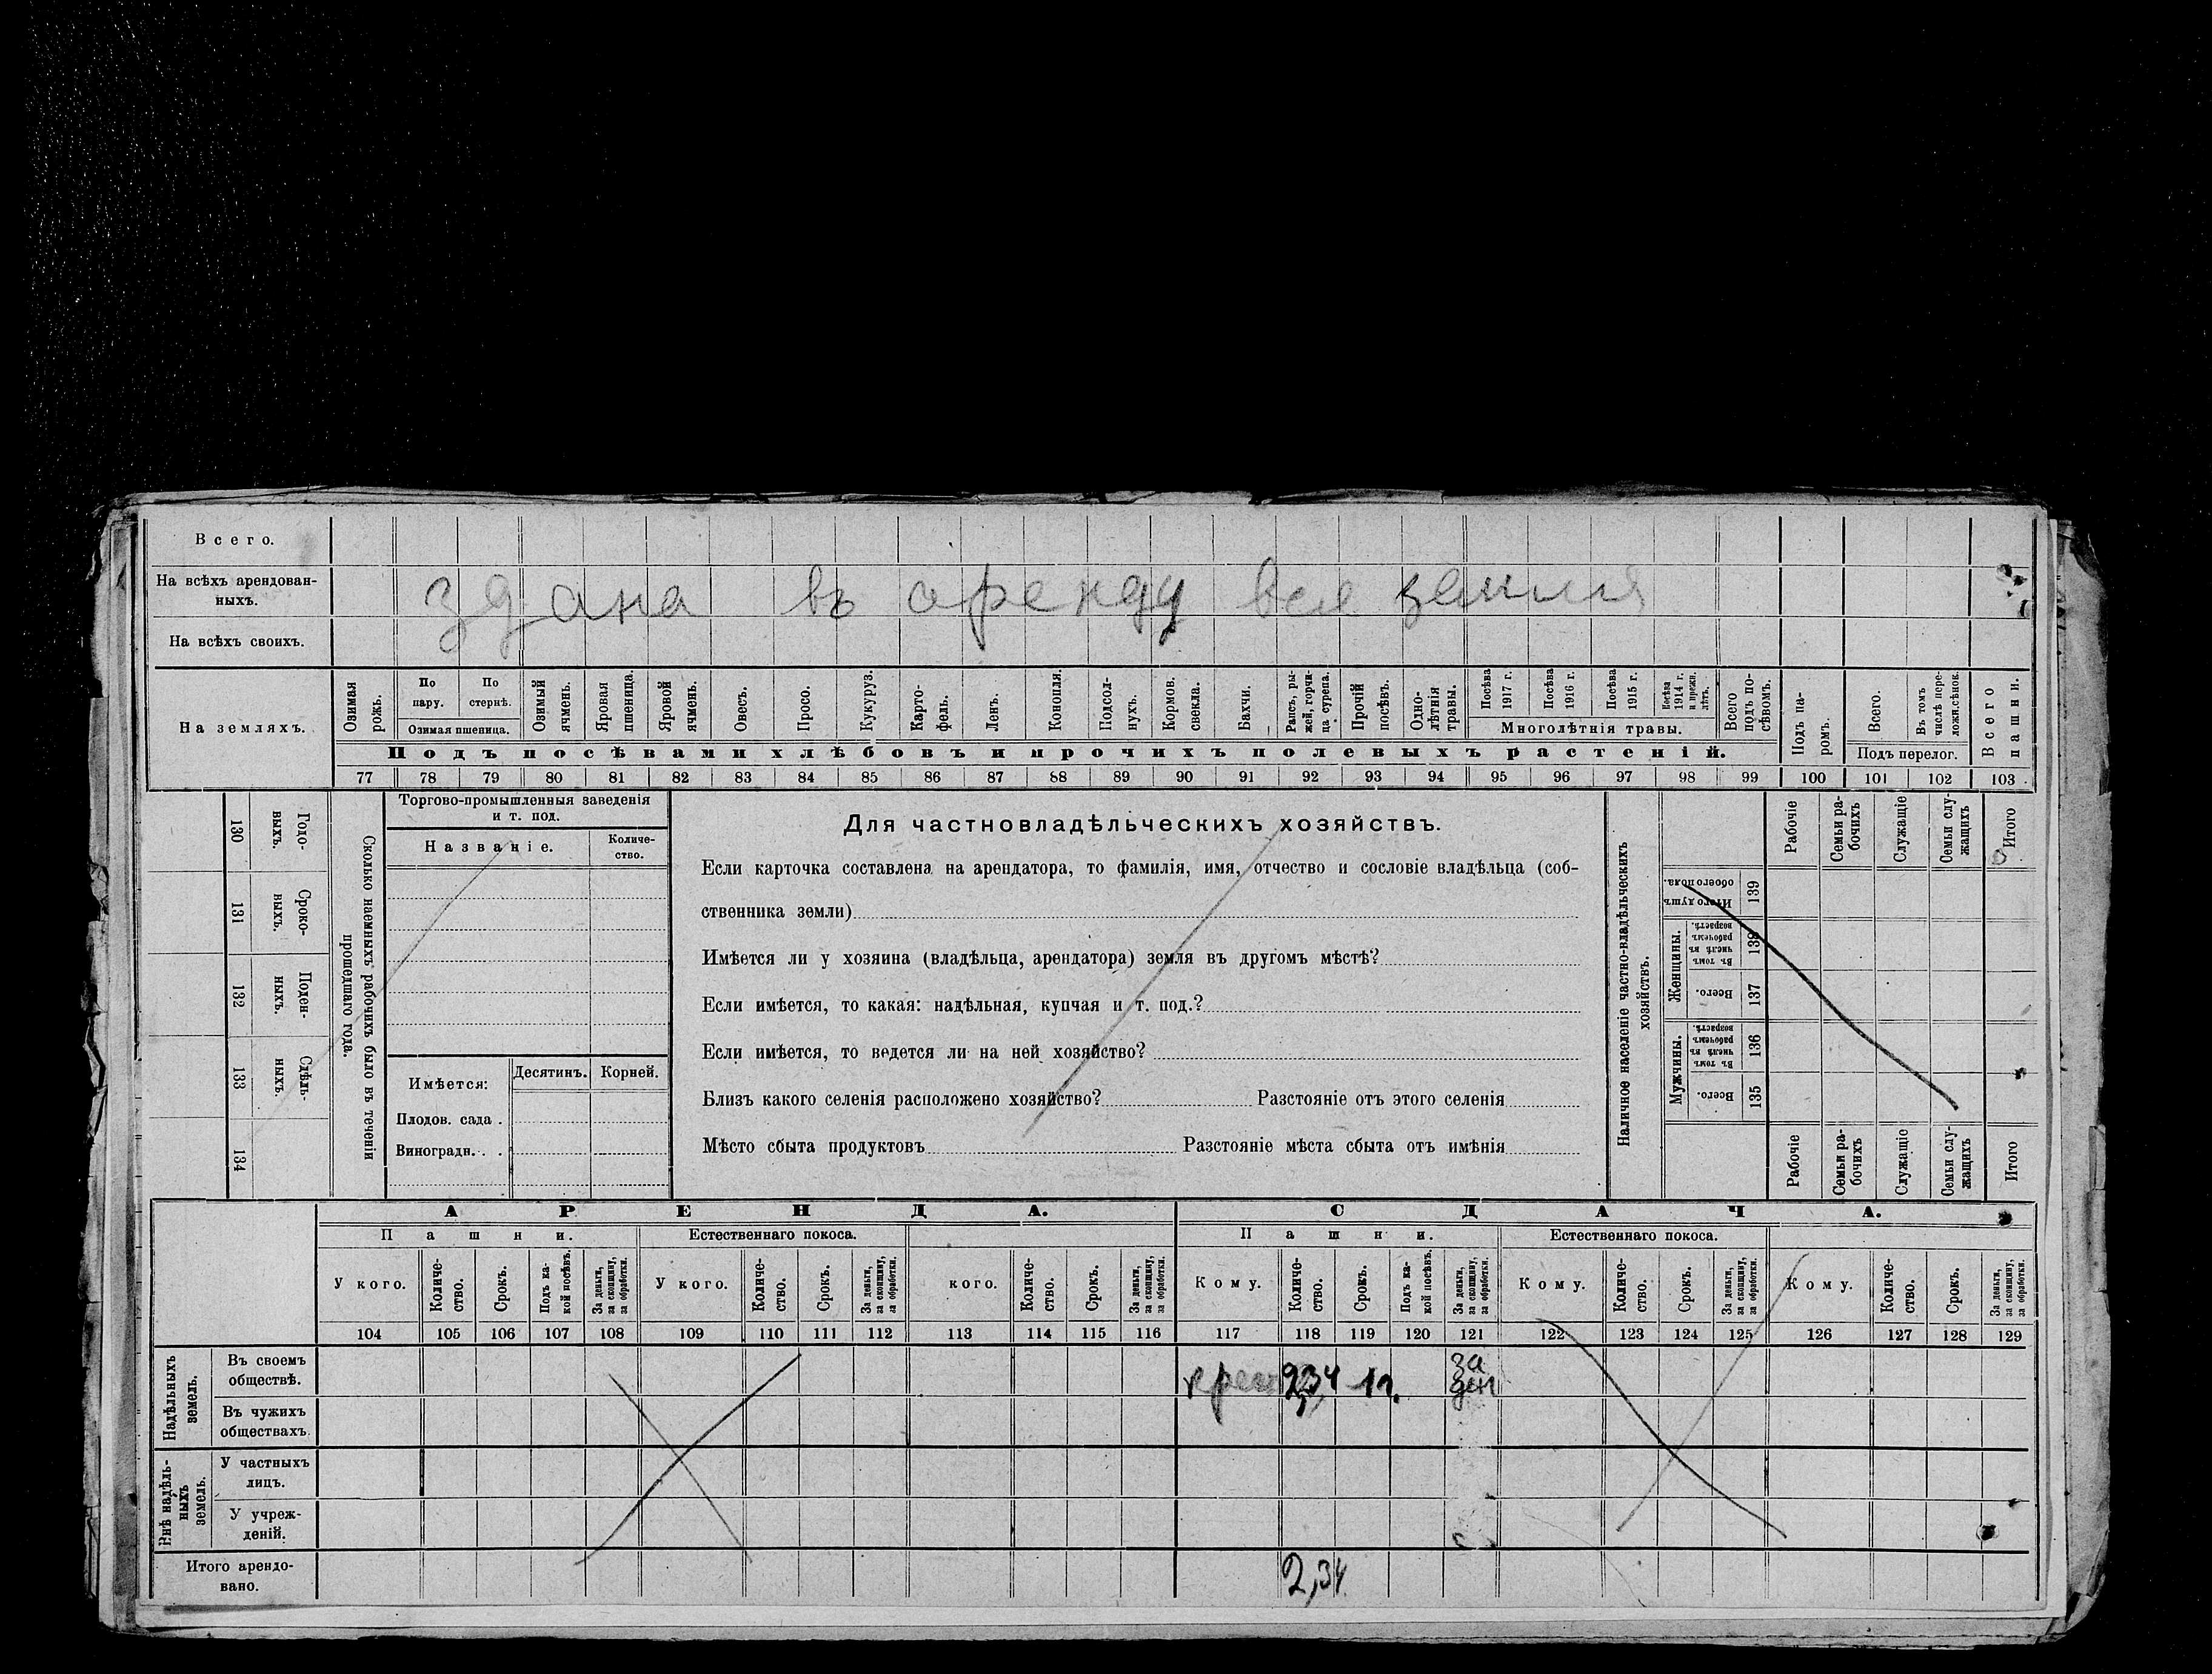 Всего.
На всѣхъ арендован-
ныхъ.
здана въ аренду вся земля
На всѣхъ своихъ.
На земляхъ.
Озимая рожь.
По пару.
По стернѣ.
Озимая пшеница.
Озимый ячмень.
Яровая пшеница.
Яровой ячмень.
Овесъ.
Просо.
Кукуруз.
Карто-
фель.
Ленъ.
Конопля.
Подсол-
нухъ.
Кормов. свекла.
Бахчи.
Рапсъ, ры-
жей, горчи-
ца, сурепа.
Прочій посѣвъ.
Одно-
лѣтнія травы.
Посѣва 1917 г.
Посѣва 1916 г.
Посѣва 1915 г.
Посѣва 1914 г. и прежн. лѣтъ.
Многолѣтнія травы.
Всего подъ по-
сѣвомъ.
Подъ посѣвами хлѣбовъ и прочихъ полевыхъ растеній.
Подъ па-
ромъ.
Всего.
Въ томъ числѣ пере-
ложн. сѣнок.
Подъ перелог.
Всего пашни.
77 78 79 80 81 82 83 84 85 86 87 88 89 90 91 92 93 94 95 96 97 98 99 100 101 102 103
130
Годо-
выхъ.
131
Сроко-
ныхъ.
132
Поден-
ныхъ.
133
Сдѣль-
ныхъ.
134
Сколько наемныхъ рабочихъ было въ теченіи
прошедшаго года.
Торгово-промышленныя заведенія
и т. под.
Названіе.
Количе-
ство.
Имѣется:
Десятинъ.
Корней.
Плодов. сада .
Виноградн. . .
Для частновладѣльческихъ хозяйствъ.
Если карточка составлена на арендатора, то фамилія, имя, отчество и сословіе владѣльца (соб-
ственника земли)
Имѣется ли у хозяина (владѣльца, арендатора) земля въ другомъ мѣстѣ?
Если имѣется, то какая: надѣльная, купчая и т. под.?
Если имѣется, то ведется ли на ней хозяйство?
Близъ какого селенія расположено хозяйство? Разстояніе отъ этого селенія
Мѣсто сбыта продуктовъ Разстояніе мѣста сбыта отъ имѣнія
Наличное населеніе частно-владѣльческихъ
хозяйствъ.
Рабочіе
Семьи ра-
бочихъ
Служащіе
Семьи слу-
жащихъ
Итого
Итого душъ обоего пола.
139
Женщины.
Въ томъ числѣ въ рабочемъ возрастѣ.
138
Всего.
137
Мужчины.
Въ томъ числѣ въ рабочемъ возрастѣ.
136
Всего.
135
Рабочіе
Семьи ра-
бочихъ
Служащіе
Семьи слу-
жащихъ
Итого
АРЕНДА.
СДАЧА.
Пашни.
Естественнаго покоса.
Пашни.
Естественнаго покоса.
У кого.
Количе-
ство.
Срокъ.
Подъ ка-
кой посѣвъ.
За деньги, за скопщину, за обработки.
У кого.
Количе-
ство.
Срокъ.
За деньги, за скопщину, за обработки.
кого.
Количе-
ство.
Срокъ.
За деньги, за скопщину, за обработки.
Кому.
Количе-
ство.
Срокъ.
Подъ ка-
кой посѣвъ.
За деньги, за скопщину, за обработки.
Кому.
Количе-
ство.
Срокъ.
За деньги, за скопщину, за обработки.
Кому.
Количе-
ство.
Срокъ.
За деньги, за скопщину, за обработки.
104 105 106 107 108 109 110 111 112 113 114 115 116 117 118 119 120 121 122 123 124 125 126 127 128 129
Надѣльныхъ земель.
Въ своемъ
обществѣ.
2,34 1 г. за
Въ чужихъ
обществахъ.
Внѣ надѣль-
ныхъ
земель.
У частныхъ
лицъ.
У учреж-
деній.
Итого арендо-
вано.
2,34